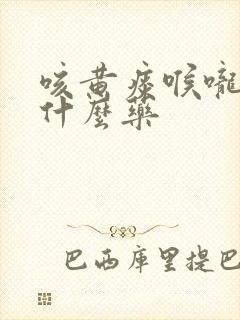 咳黄痰喉嚨
什麼藥
巴西库里提巴